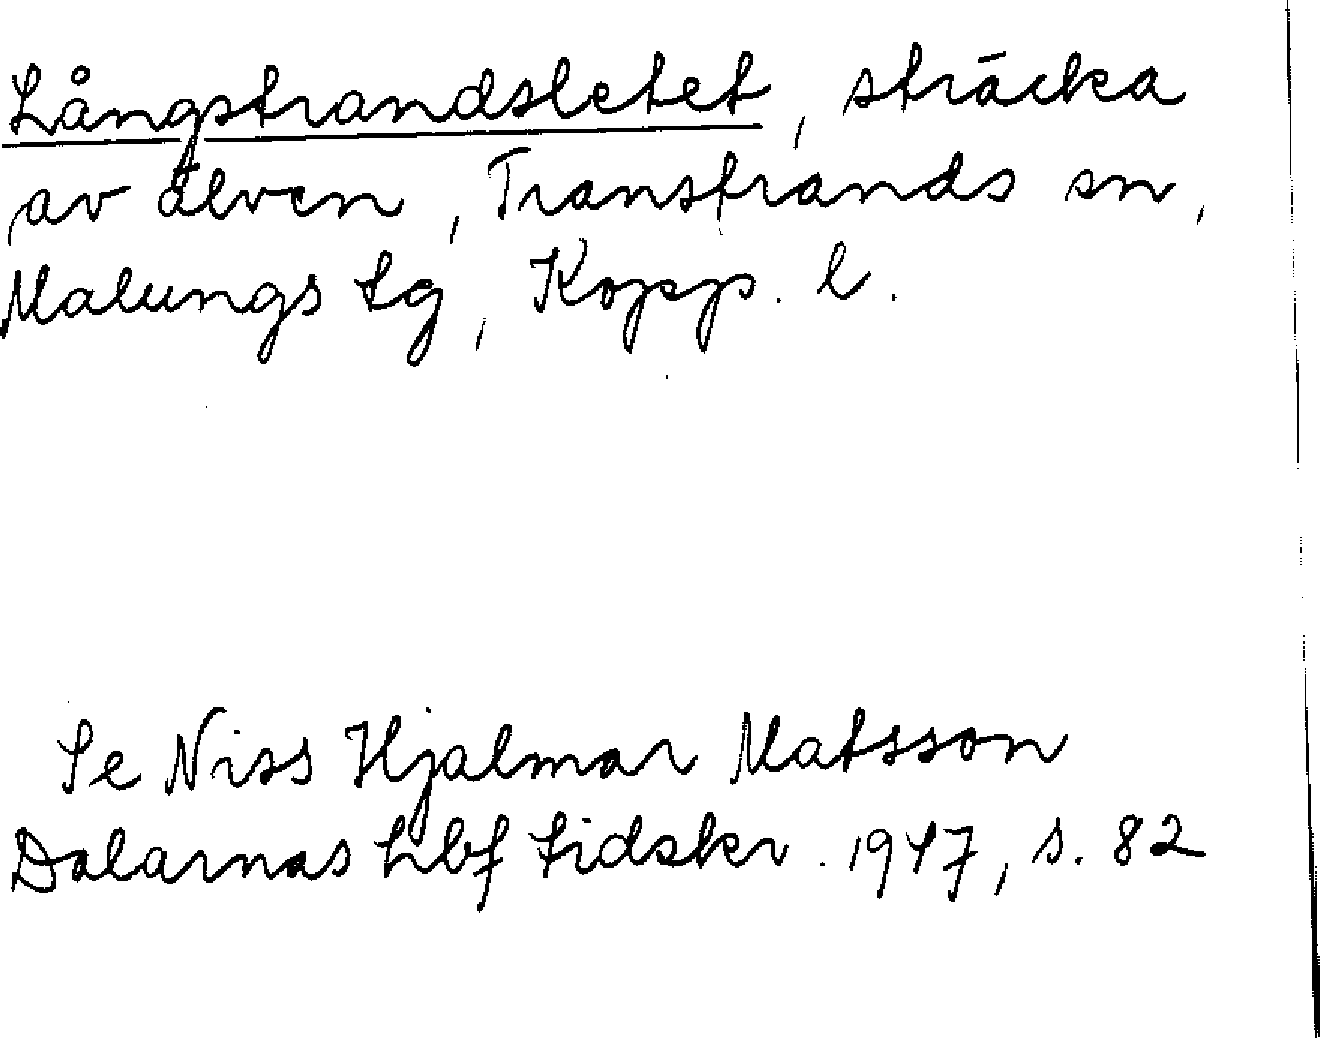 Långstrandsletet, sträcka
av älven, Transtrands sn,
Malungs tg, Kopp. l.
Se Niss Hjalmar Matsson
Dalarnas hbf tidskr. 1947, s. 82